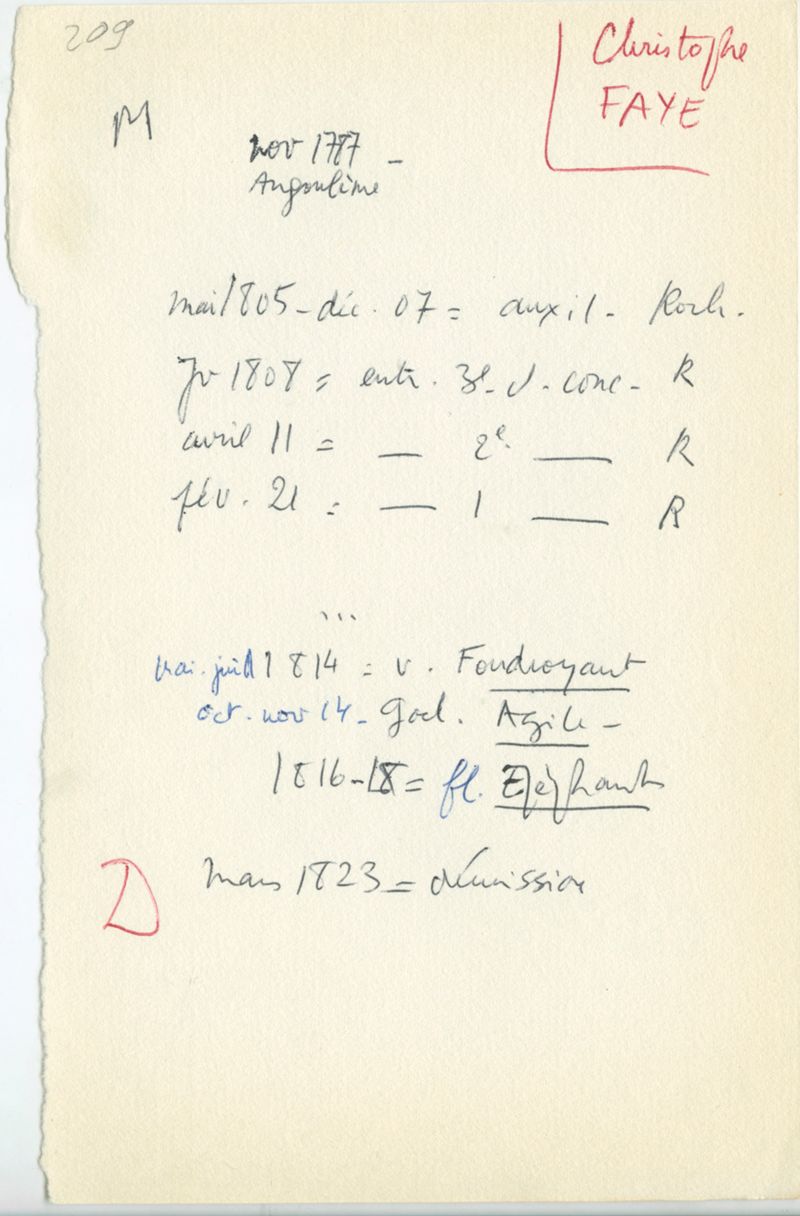 209
Christophe
FAYE
M
nov 1787 -
Angoulême
mai 1805 - déc. 07 = auxil. Roch.
Jv 1808 = entr. 3e cl. conc. R
avril 11 = — 2e — R
fév. 21 = — 1 — R
...
mai. juil 1814 = v. Foudroyant
oct. nov 14 - goel. Agile -
1816-18 = fl. Eléphant
D
mars 1823 = démission